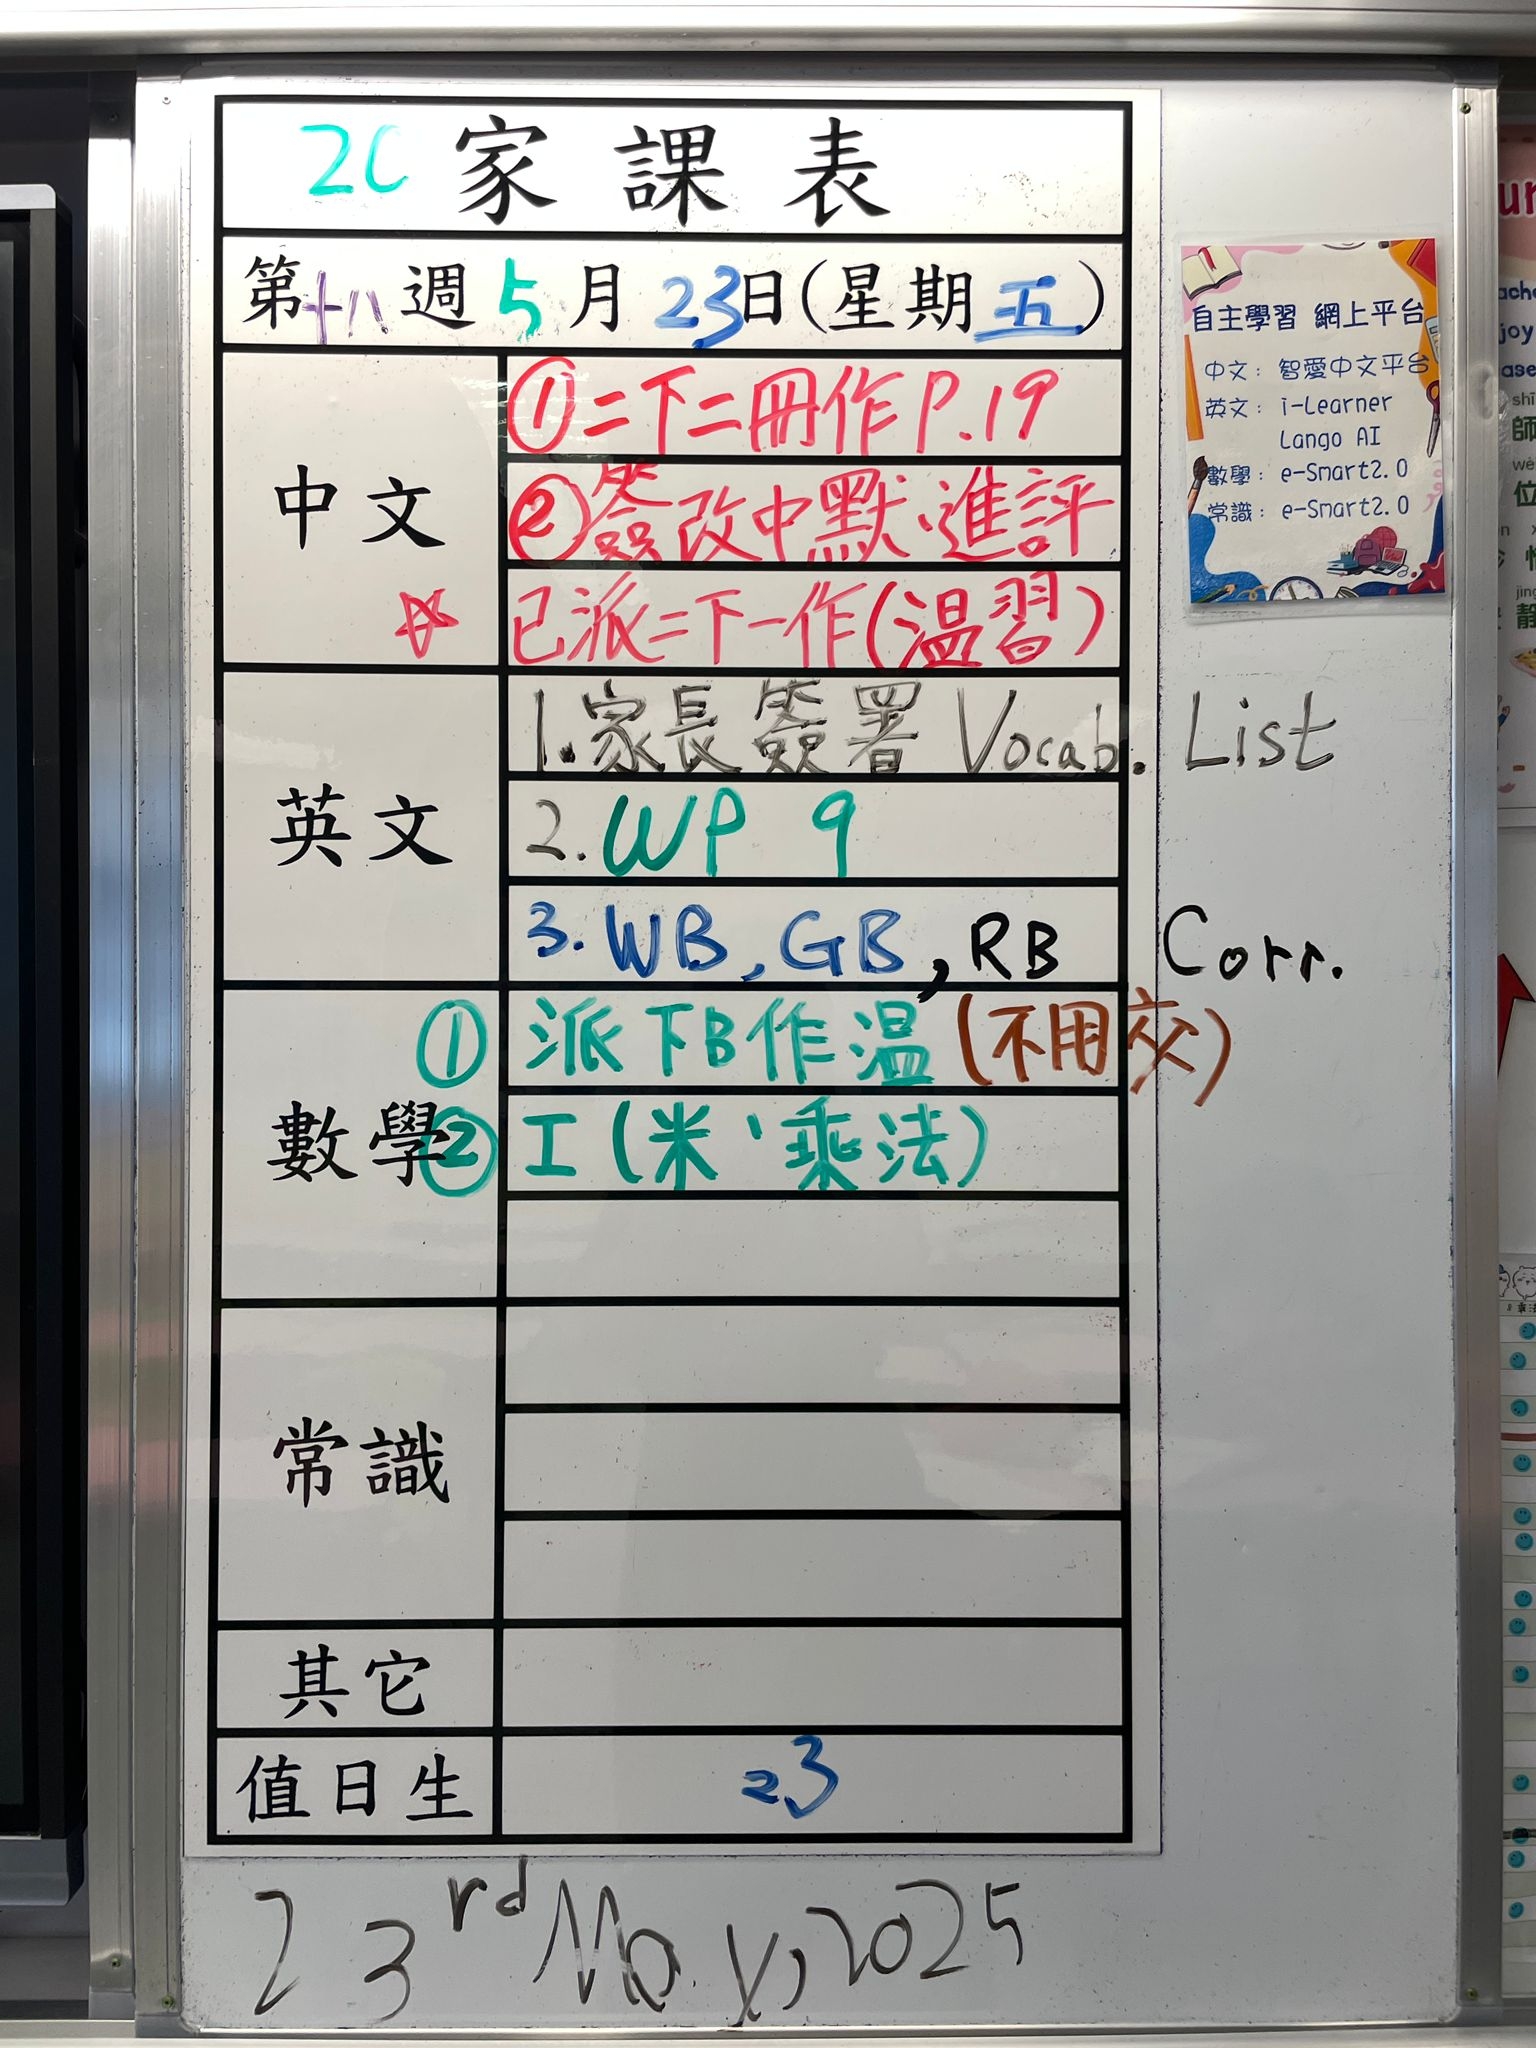 2C 家課表
第十八週5月23日(星期五)
中文
①二下二冊作P.19
②簽改中默、進評
☆已派二下一作(温習)
英文
1.家長簽署 Vocab. List
2. WP 9
3. WB, GB, RB Corr.
數學
① 派下B作温(不用交)
② 工(米、乘法)
常識
其它
值日生 23
23rd May, 2025
自主學習 網上平台
中文: 智愛中文平台
英文: i-Learner
Lango AI
數學: e-Smart2.0
常識: e-Smart2.0
師
位
靜